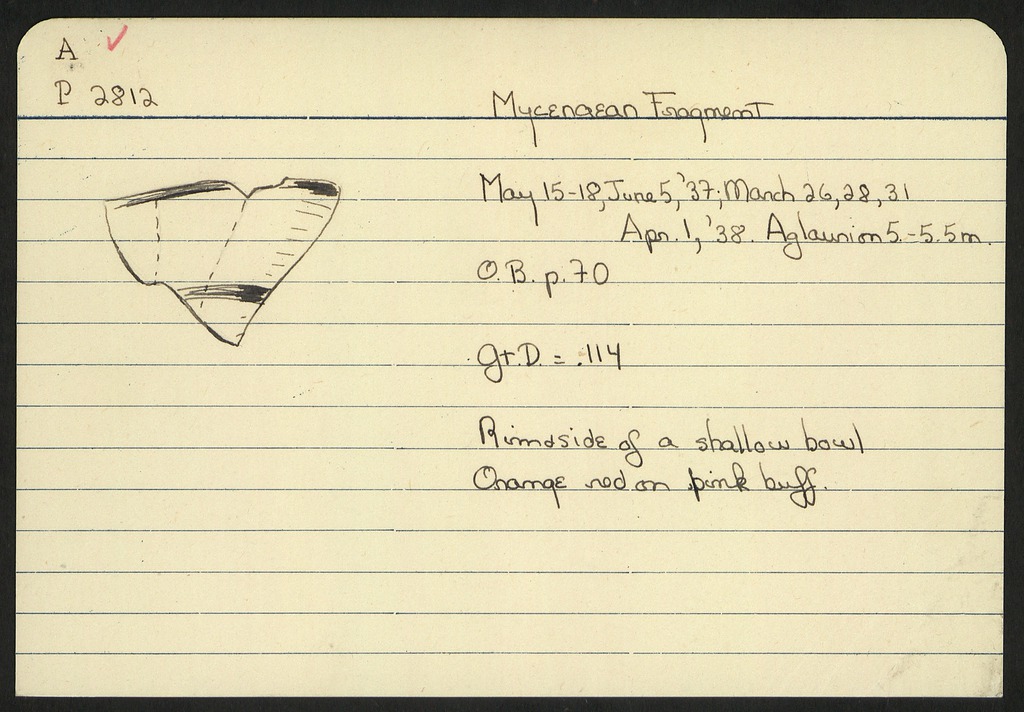 A ✓
P 2812
Mycenaean Fragment
May 15-18, June 5, '37; March 26, 28, 31
Apr. 1, '38. Aglaurion 5.-5.5m.
O.B. p. 70
Gr.D. = .114
Rim & side of a shallow bowl
Orange red on pink buff.